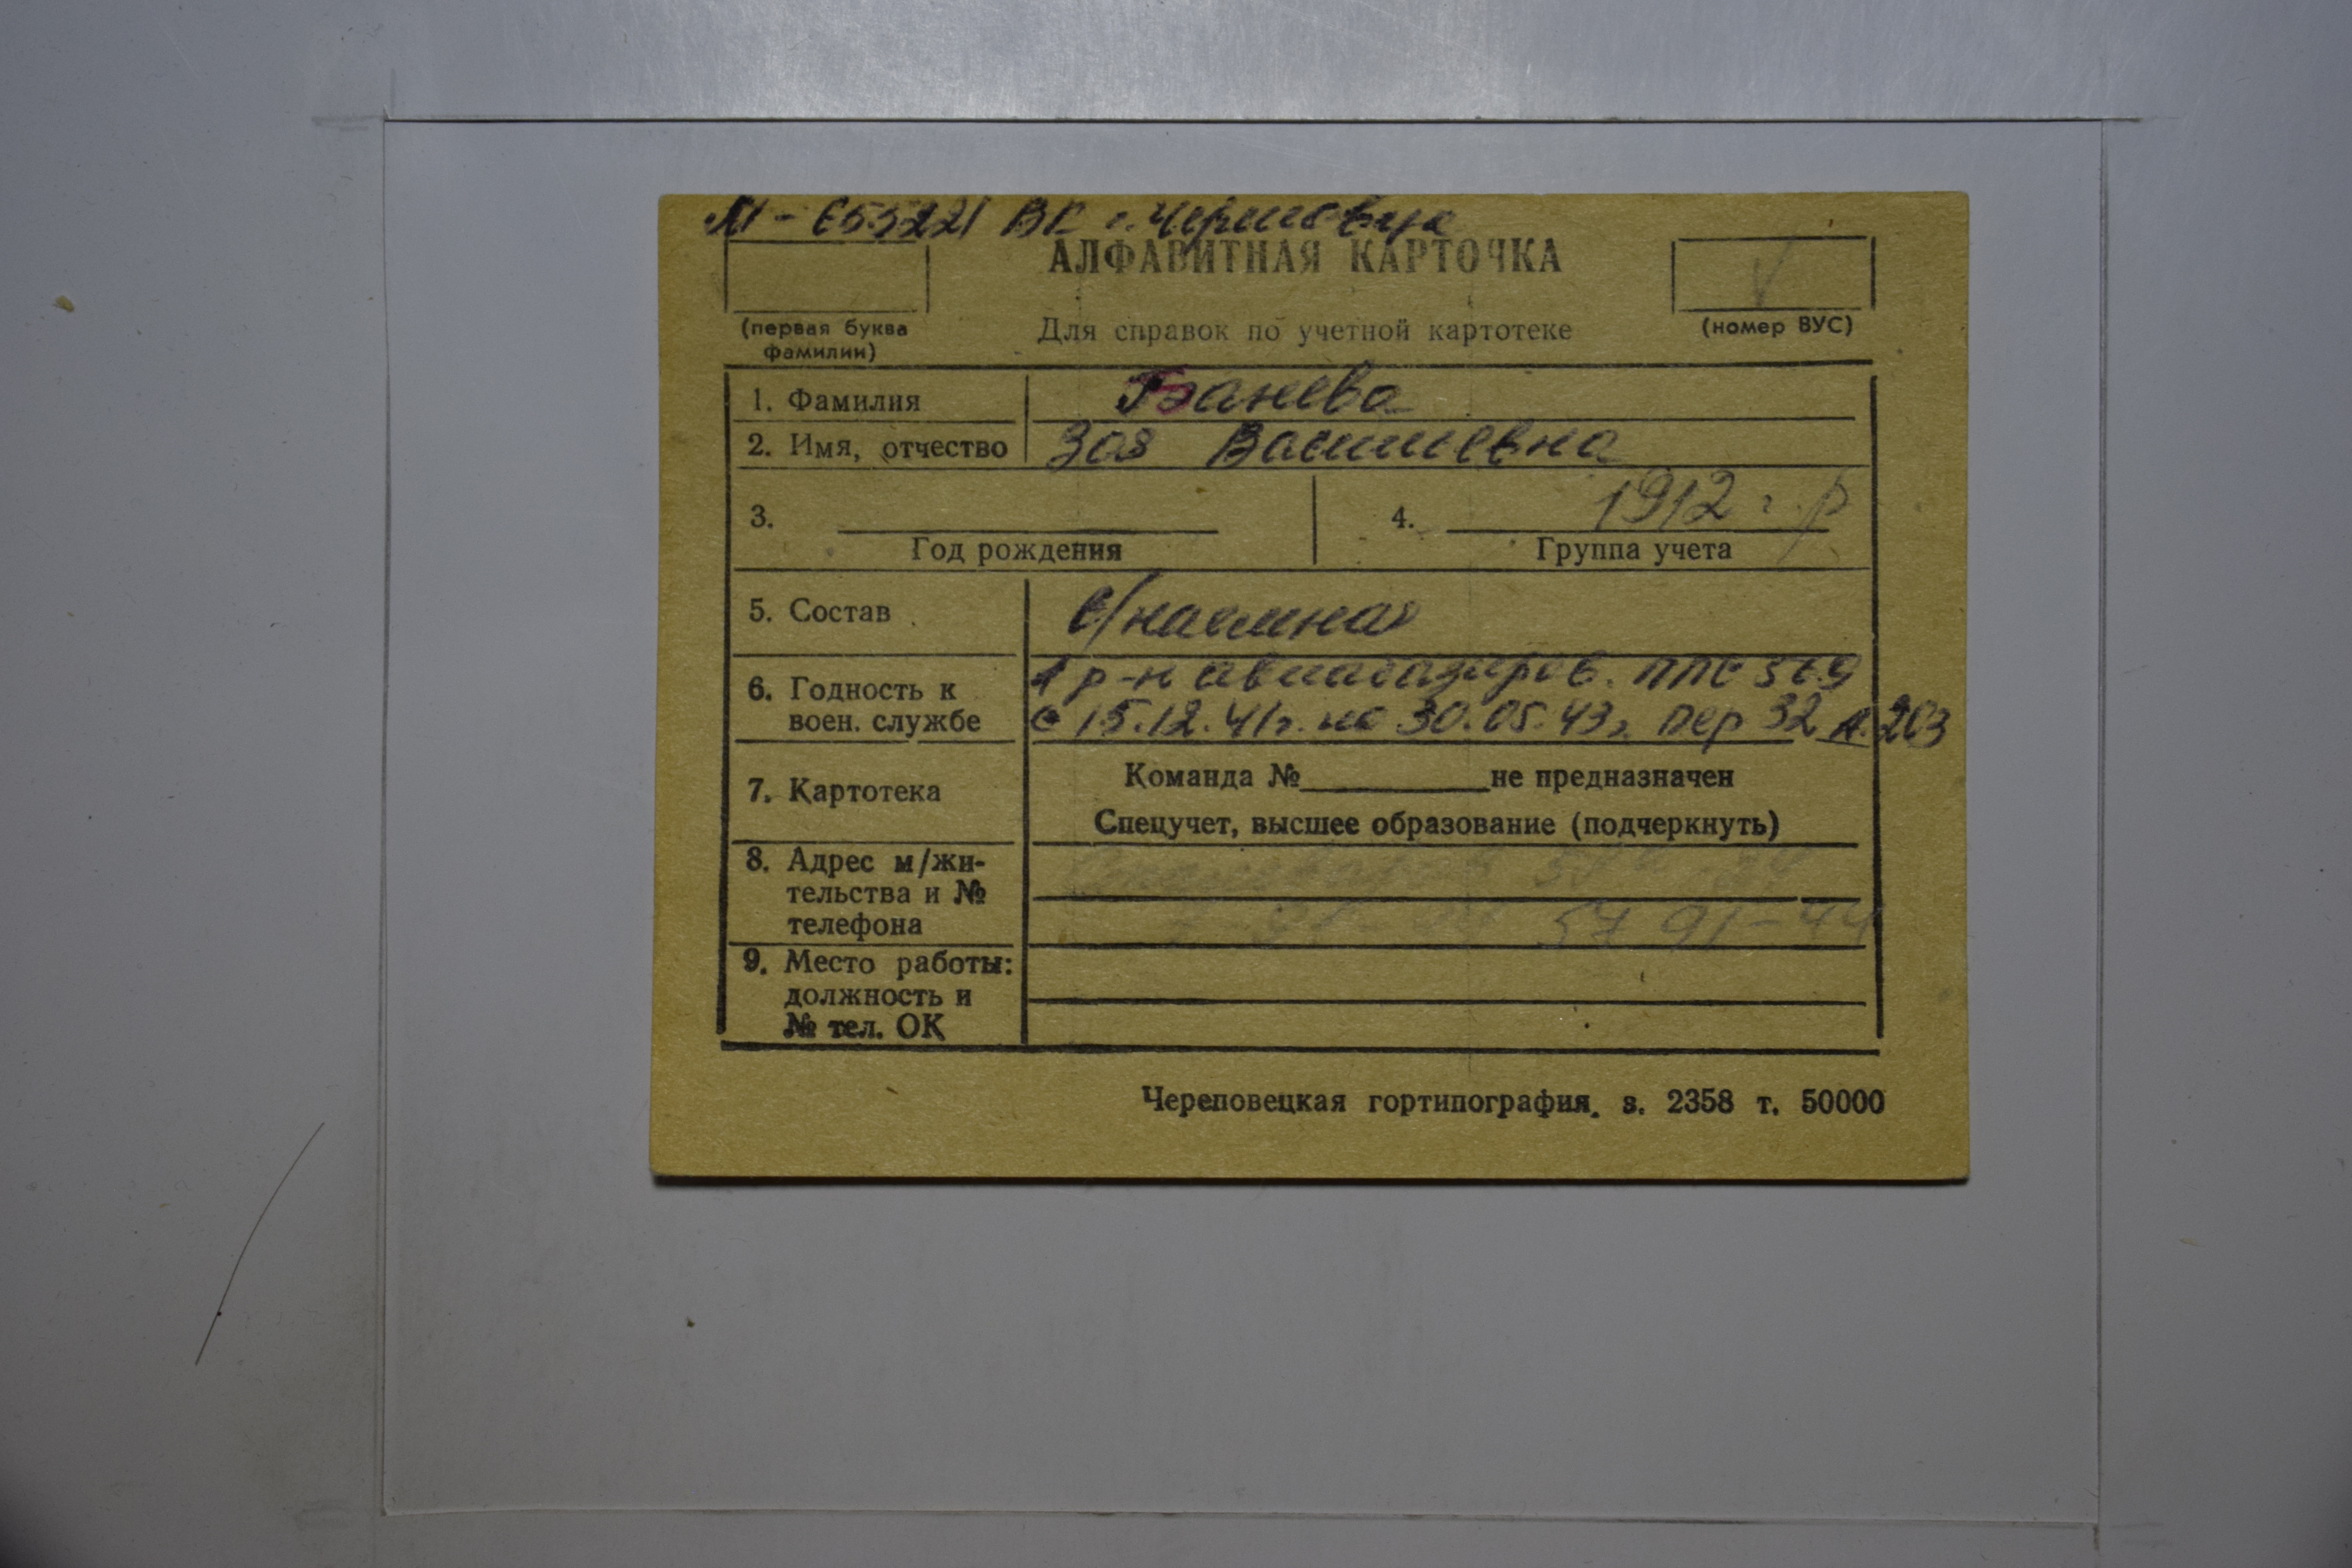 М - 653221 ВК г. Череповца
АЛФАВИТНАЯ КАРТОЧКА
(первая буква фамилии)
Для справок по учетной картотеке
(номер ВУС)
1. Фамилия Банева
2. Имя, отчество Зоя Васильевна
3. Год рождения
4. 1912 г. р
Группа учета
5. Состав в/наемная
6. Годность к воен. службе
1 р-н авиабазиров. ппс 569
с 15.12.41г. по 30.05.43г. пер 32 л. 203
7. Картотека
Команда № не предназначен
Спецучет, высшее образование (подчеркнуть)
8. Адрес м/жи-
тельства и №
телефона
57 91-44
9. Место работы:
должность и
№ тел. ОК
Череповецкая гортипография. з. 2358 т. 50000